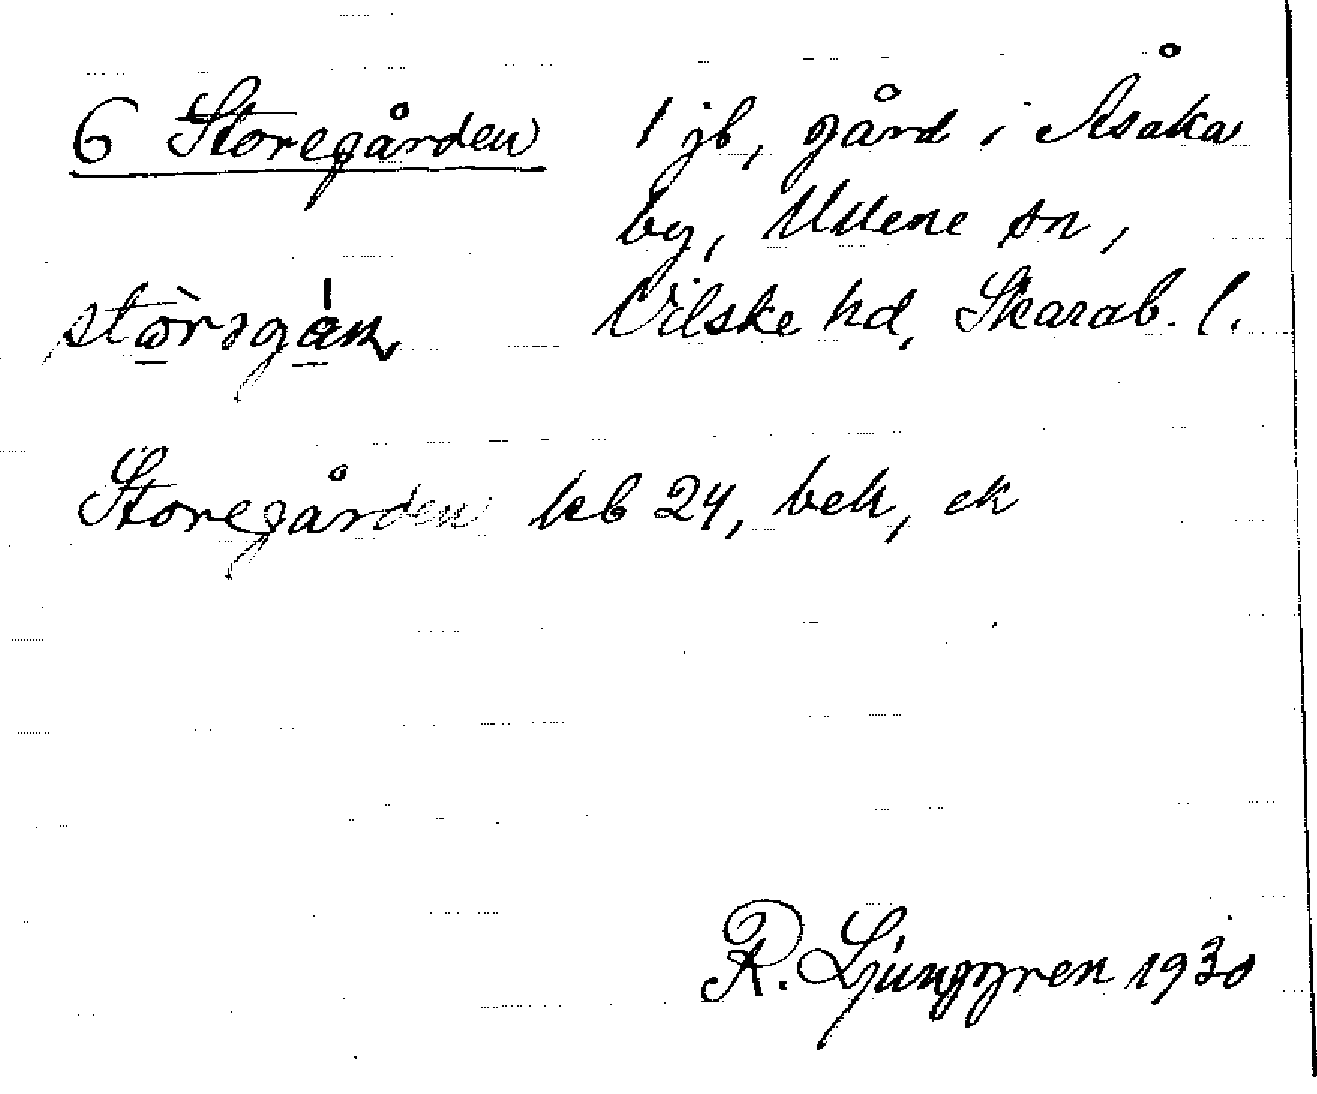 6 Storegården 1 jb, gård i Åsaka
by, Ullene sn,
Vilske hd, Skarab. l.
Storegården kb 24, bek, ek
R. Ljunggren 1930